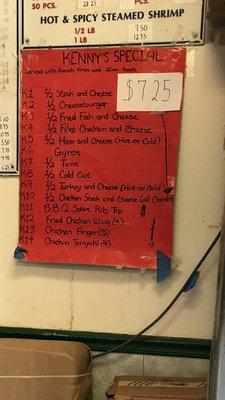 50 PCS.
PCS.
HOT & SPICY STEAMED SHRIMP
1/2 LB 7.50
1 LB 13.50
KENNY'S SPECIAL
Served with french fries and
$7.25
K1 1/2 Steak and Cheese
K2 1/2 Cheeseburger
K3 1/2 Fried Fish and Cheese
K4 1/2 Filet Chicken and Cheese
K5 1/2 Ham and Cheese (Hot or Cold)
K6 Gyros
K7 1/2 Tuna
K8 1/2 Cold Cut
K9 1/2 Turkey and Cheese (Hot or Cold)
K10 1/2 Chicken Steak and Cheese (all Chicken)
K11 B.B.Q. Spare Rib Tip
K12 Fried Chicken Wing (4)
K13 Chicken Finger (5)
K14 Chicken Teriyaki (4)